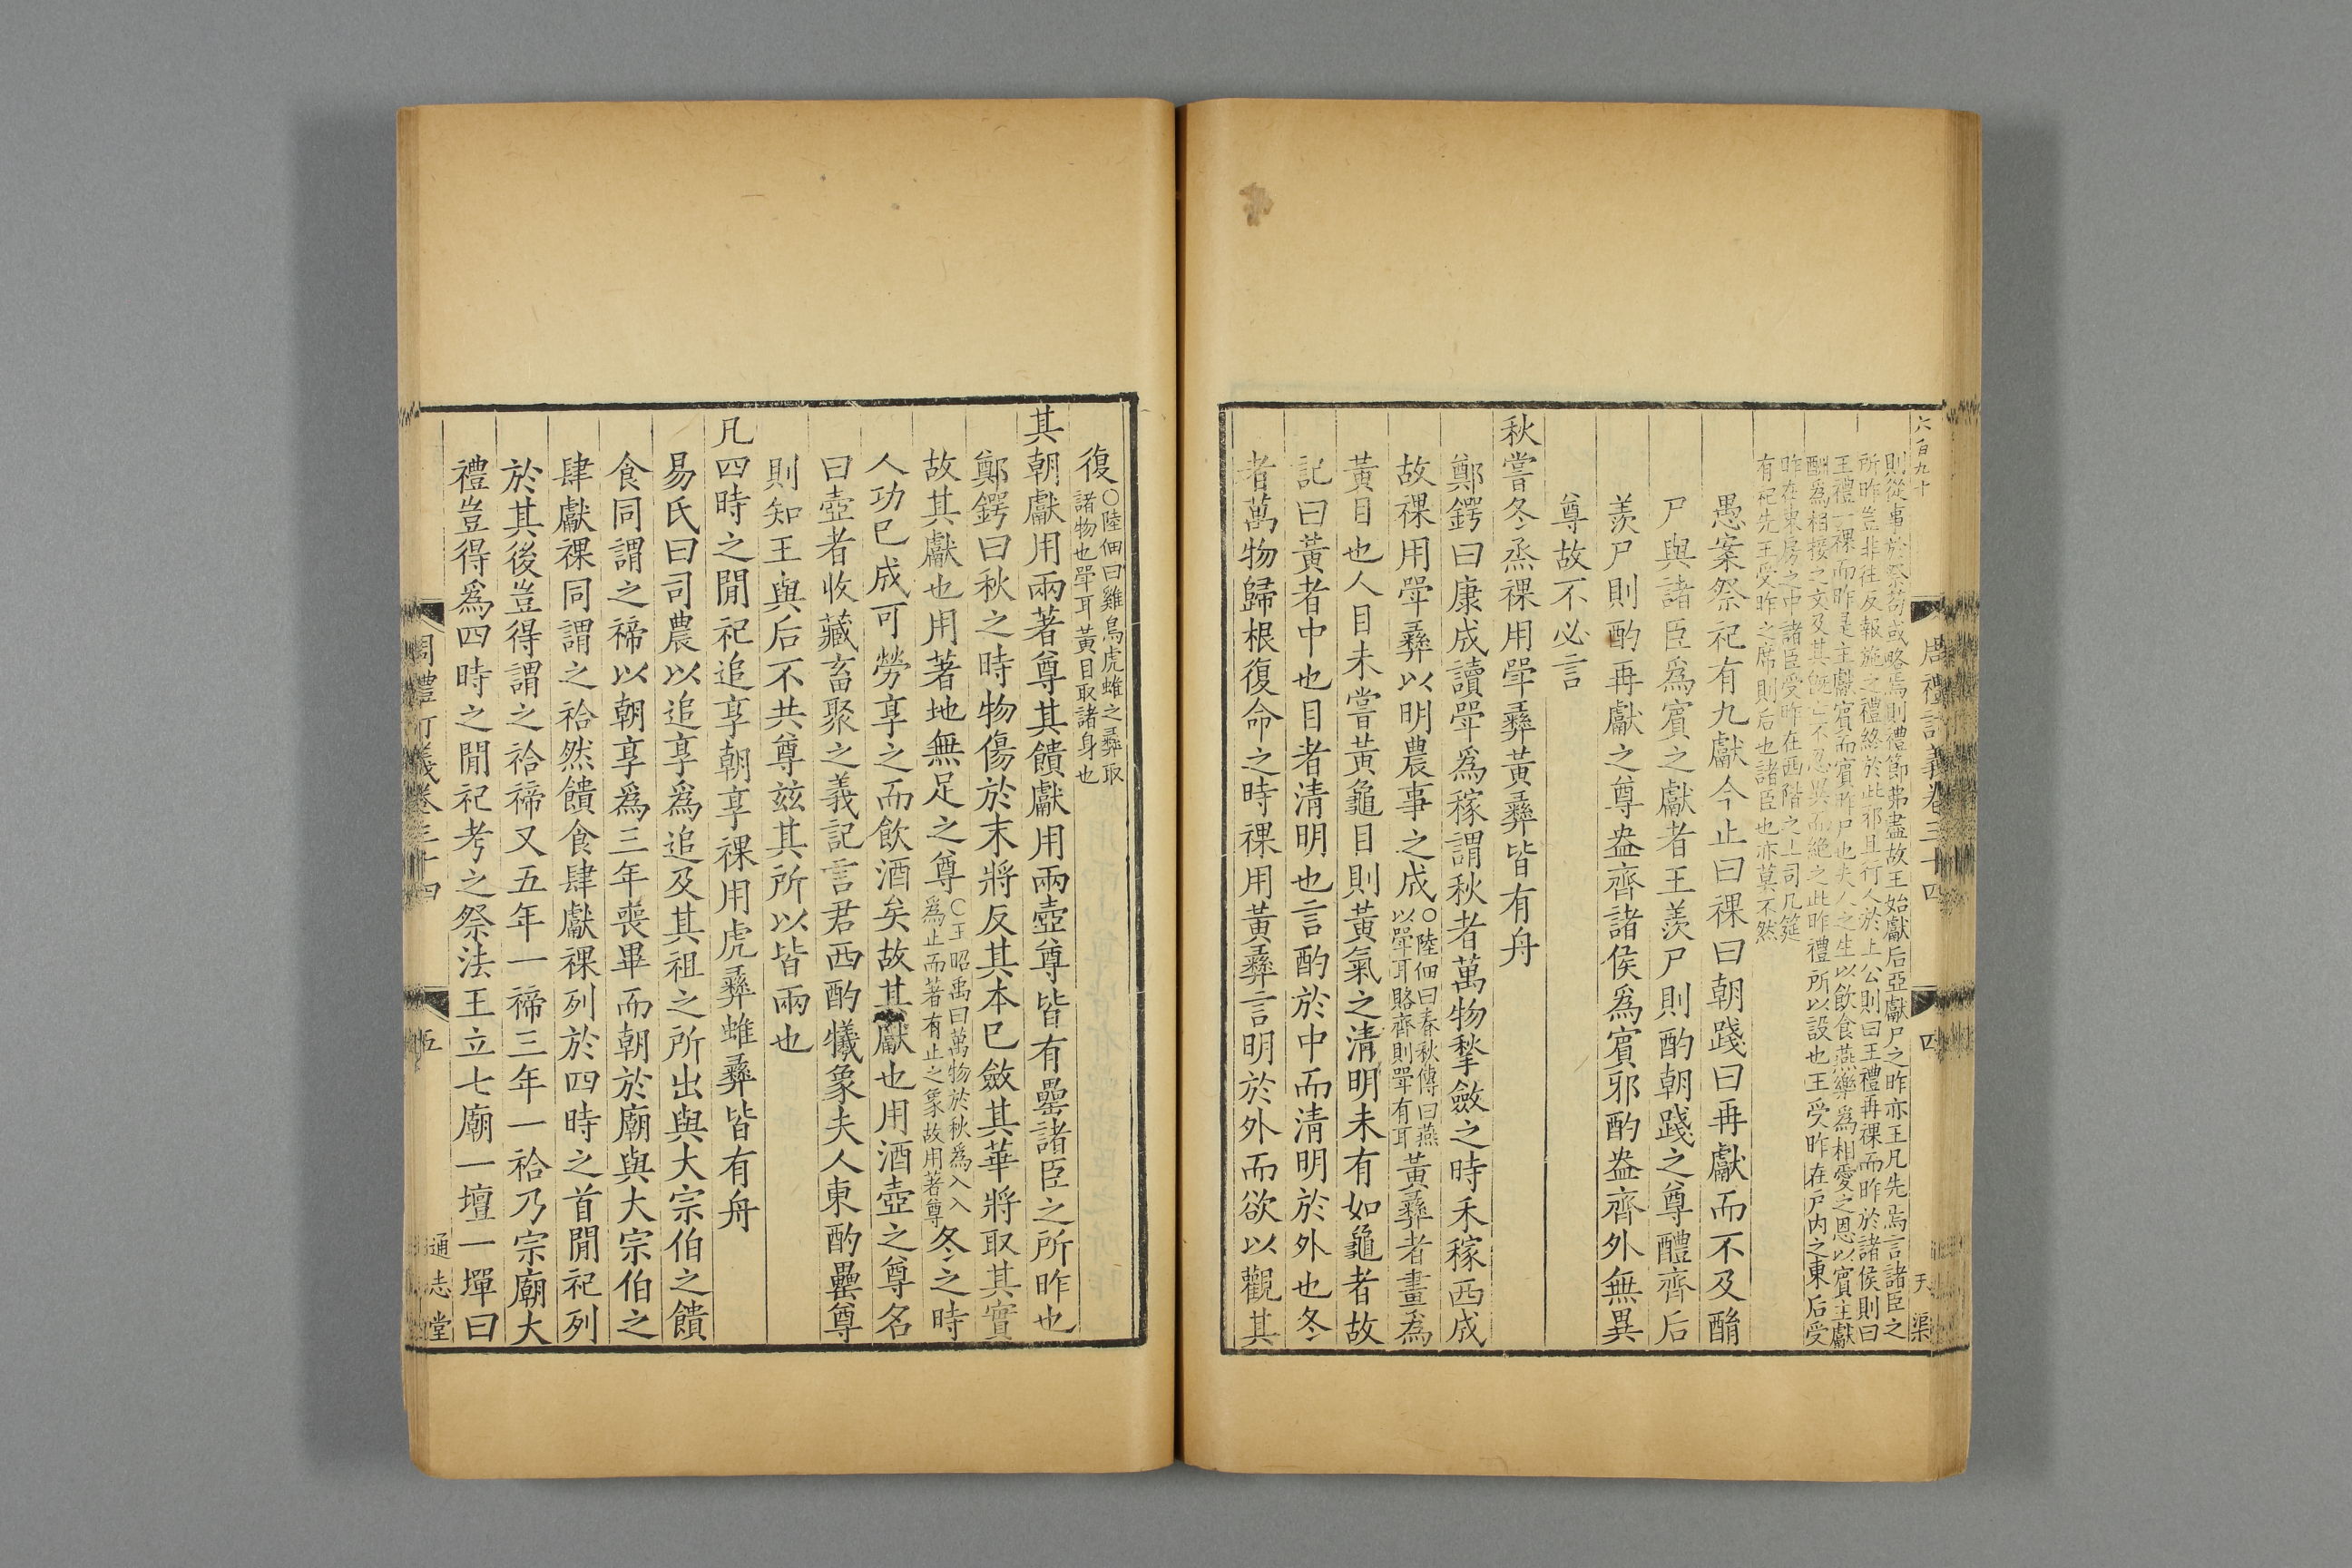 六百九十
周禮訂義卷三十四
四
天渠
則從事於祭苟或略焉則禮節弗盡故王始獻后亞獻尸之昨亦王凡先焉言諸臣之
所昨豈非往反報施之禮終於此邪且行人於上公則曰王禮再祼而昨於諸侯則曰
王禮一祼而昨是主獻賓而賓昨尸也夫人之生以飲食燕樂為相愛之恩以賓主獻
酬為相接之文及其既亡不忍異而絕之此昨禮所以設也王受昨在戶內之東后受
昨在東房之中諸臣受昨在西階之上司几筵
有祀先王受昨之席則后也諸臣也亦莫不然
愚案祭祀有九獻今止曰祼曰朝踐曰再獻而不及酳
尸與諸臣爲賓之獻者王羨尸則酌朝踐之尊醴齊后
羨尸則酌再獻之尊盎齊諸侯爲賓邪酌盎齊外無異
尊故不必言
秋嘗冬烝祼用斝彝黃彝皆有舟
鄭鍔曰康成讀斝爲稼謂秋者萬物揫斂之時禾稼西成
故祼用斝彝以明農事之成○陸佃曰春秋傳曰燕
以斝耳賂齊則斝有耳黃彝者畫爲
黃目也人目未嘗黃龜目則黃氣之清明未有如龜者故
記曰黃者中也目者清明也言酌於中而清明於外也冬
者萬物歸根復命之時祼用黃彝言明於外而欲以觀其
復○陸佃曰雞鳥虎蜼之彝取
諸物也斝耳黃目取諸身也
其朝獻用兩著尊其饋獻用兩壺尊皆有罍諸臣之所昨也
鄭鍔曰秋之時物傷於末將反其本巳斂其華將取其實
故其獻也用著地無足之尊○王昭禹曰萬物於秋爲入入
爲止而著有止之象故用著尊冬之時
人功巳成可勞享之而飲酒矣故其獻也用酒壺之尊名
曰壺者收藏畜聚之義記言君西酌犧象夫人東酌罍尊
則知王與后不共尊玆其所以皆兩也
凡四時之閒祀追享朝享祼用虎彝蜼彝皆有舟
易氏曰司農以追享爲追及其祖之所出與大宗伯之饋
食同謂之禘以朝享爲三年喪畢而朝於廟與大宗伯之
肆獻祼同謂之祫然饋食肆獻祼列於四時之首閒祀列
於其後豈得謂之祫禘又五年一禘三年一祫乃宗廟大
禮豈得爲四時之閒祀考之祭法王立七廟一壇一墠曰
周禮訂義卷三十四
五
通志堂